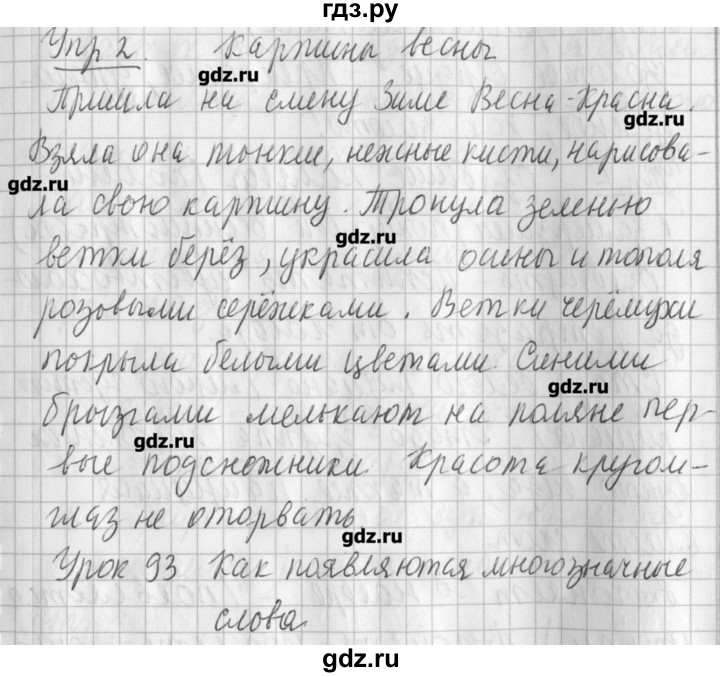 гдз.ру
Упр 2. Картины весны
gdz.ru
Пришла на смену Зиме Весна-Красна.
gdz.ru
Взяла она тонкие, нежные кисти, нарисова-
gdz.ru
ла свою картину. Тронула зеленью
gdz.ru
ветки берёз, украсила осины и тополя
розовыми серёжками. Ветки черёмухи
покрыла белыми цветами. Синими
gdz.ru
брызгами мелькают на поляне пер-
gdz.ru
вые подснежники. Красота кругом-
глаз не оторвать
gdz.ru
Урок 93 Как появляются многозначные
слова.
gdz.ru